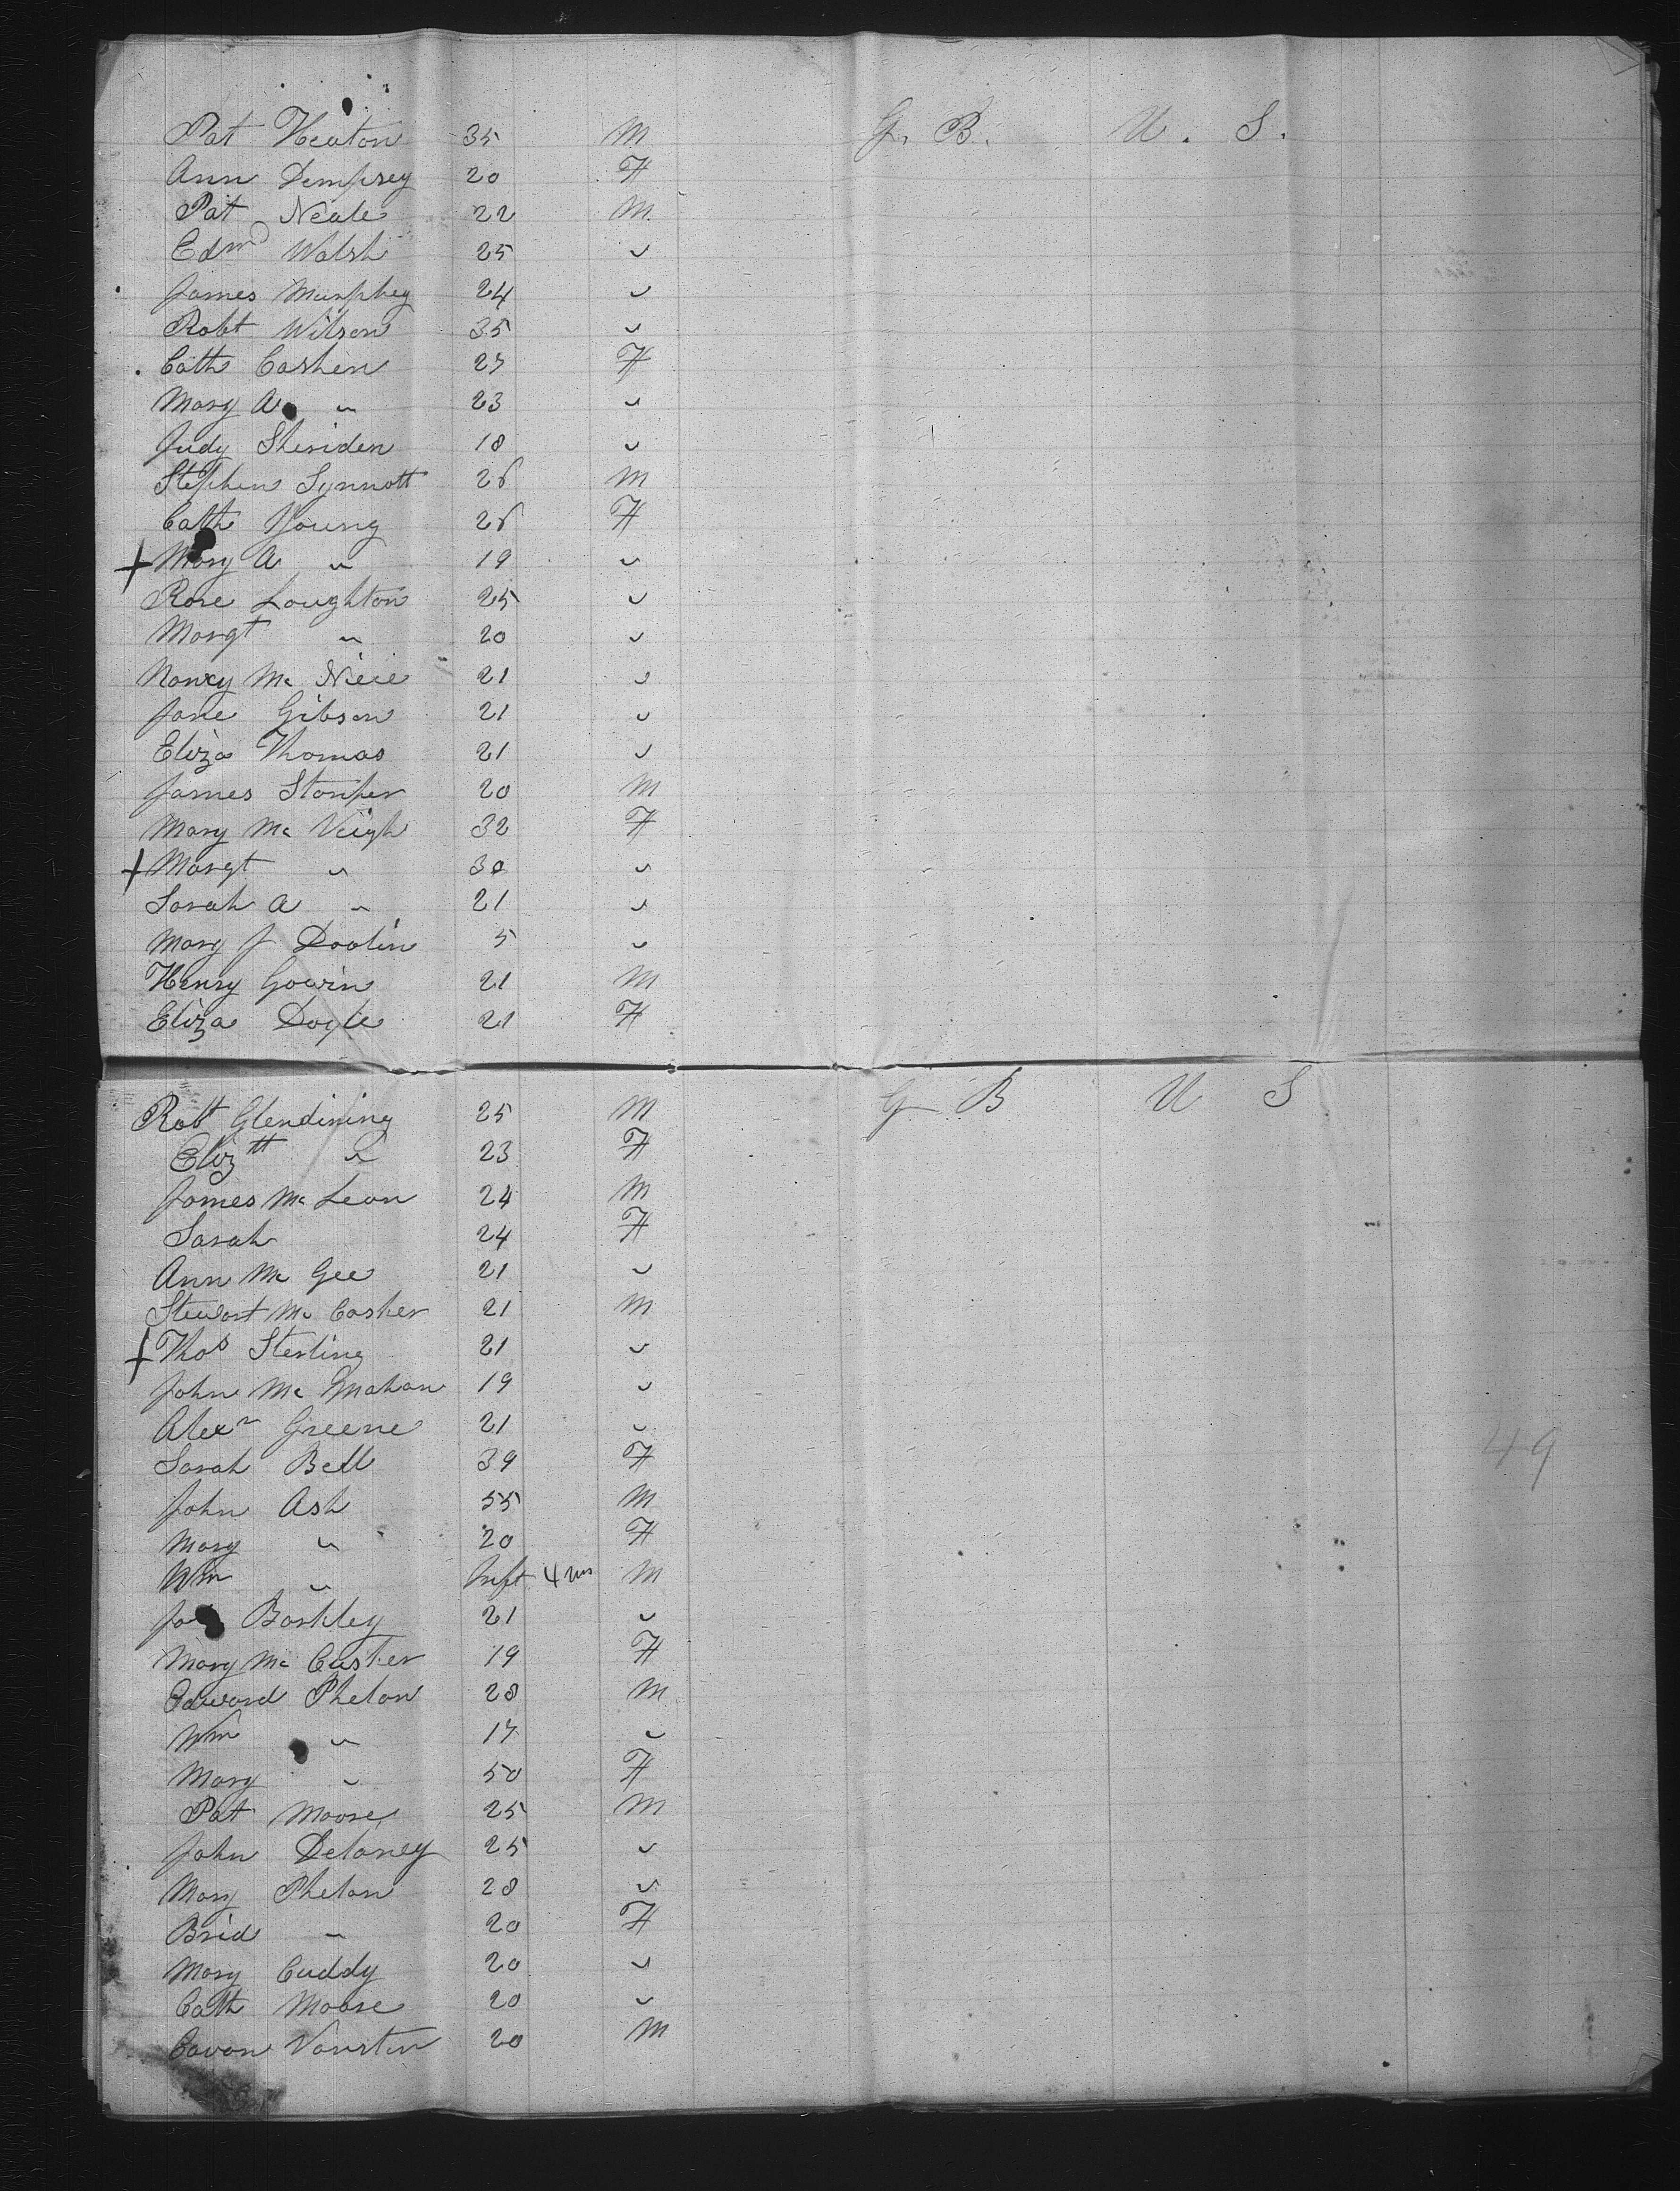 Pat Heaton 35 M G. B. U. S.
Ann Dempsey 20 F
Pat Neale 22 M
Edmd Walsh 25 "
James Murphey 24 "
Robt Wilson 35 "
Cath Cashen 27 F
Mary A " 23 "
Judy Sheriden 18 "
Stephen Synnott 26 M
Cath Young 26 F
+ Mary A " 19 "
Rose Loughton 25 "
Margt " 20 "
Nancy Mc Niece 21 "
Jane Gibson 21 "
Eliza Thomas 21 "
James Stonper 20 M
Mary Mc Veigh 32 F
+ Margt " 30 "
Sarah A " 21 "
Mary J Doolin 5 "
Henry Gowin 21 M
Eliza Doyle 21 F
Robt Glendining 25 M G B U S
Elizth " 23 F
James Mc Lean 24 M
Sarah 24 F
Ann Mc Gee 21 "
Stewart Mc Casker 21 M
+ Thos Sterling 21 "
John Mc Mahan 19 "
Alexr Greene 21 "
Sarah Bell 39 F
49
John Ash 55 M
Mary " 20 F
Wm " Inft 4 ms M
Barkley 21 "
Mary Mc Cusker 19 F
Edward Phelan 28 M
Wm " 17 "
Mary " 50 F
Pat Moore 25 M
John Delaney 25 "
Mary Phelan 28 "
Brid " 20 F
Mary Cuddy 20 "
Cath Moore 20 "
Cavan 20 M